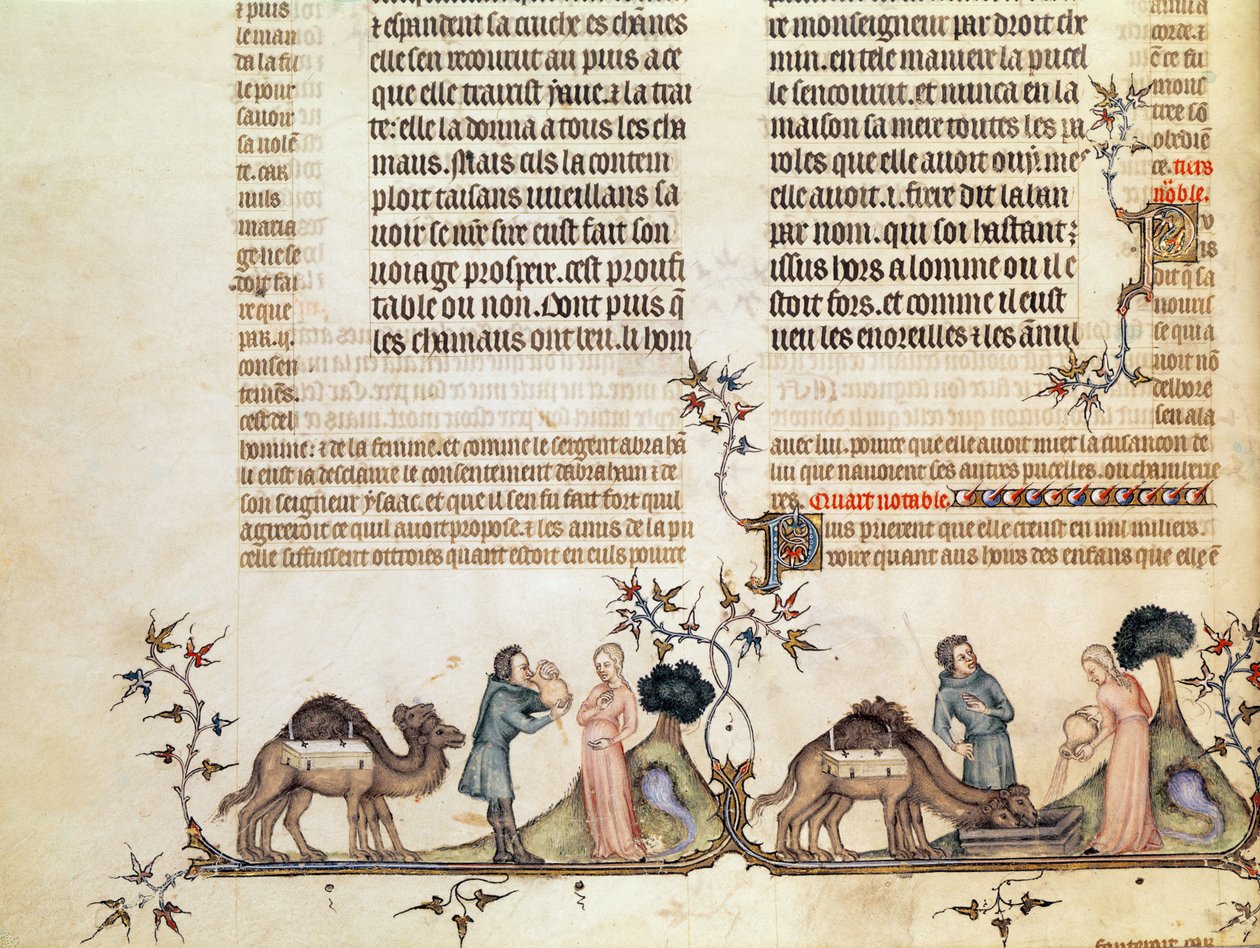 & puis
le man
da la fil
le pour
sauoir
sa uolē
te. car
nuls
maria
ge ne se
doit fai
re que
par .ij.
consen
temēs.
cest del
homme: & de la femme. et comme le sergent abrahā
li eust ia desclaire le consentement dabraham & de
son seigneur ysaac. et que il sen fu fait fort quil
agreroit ce quil auoit propose. & les amis de la pu
celle siffussent ottroies quant estoit en euls pource
& espandent sa cruche es chanes
elle sen recourut au puis a ce
que elle traisist yaue. & la trai
te: elle la donna a tous les cha
maus. Mais cils la contem
ploit taisans uueillans sa
uoir se nr̄e sire eust fait son
uoiage prospere. cest proufi
table ou non. Dont puis q̄
les chamaus ont beu. li hom
re monseigneur par droit che
min. en tele maniere la pucel
le sencourut. et nunca en la
maison sa mere toutes les pa
roles que elle auoit ouy. mes
elle auoit .i. frere dit laban
par nom. qui soi hastant:
issus hors a lomme ou il e
stoit fors. et comme il eust
ueu les enoreilles & les annil
corde. &
ē ce fu
mons
tre sō
obediē
ce. tiers
noble.
Puis
dit q̄ sa
nourris
se qui a
uoit nō
delbore
sen ala
auec lui. pource que elle auoit mier la cusancon de
lui que nauoient ses autres pucelles. ou chambrie
res. Quart notable.
Puis prierent que elle creust en mil miliers.
pource quant aus hons des enfans que elle ē